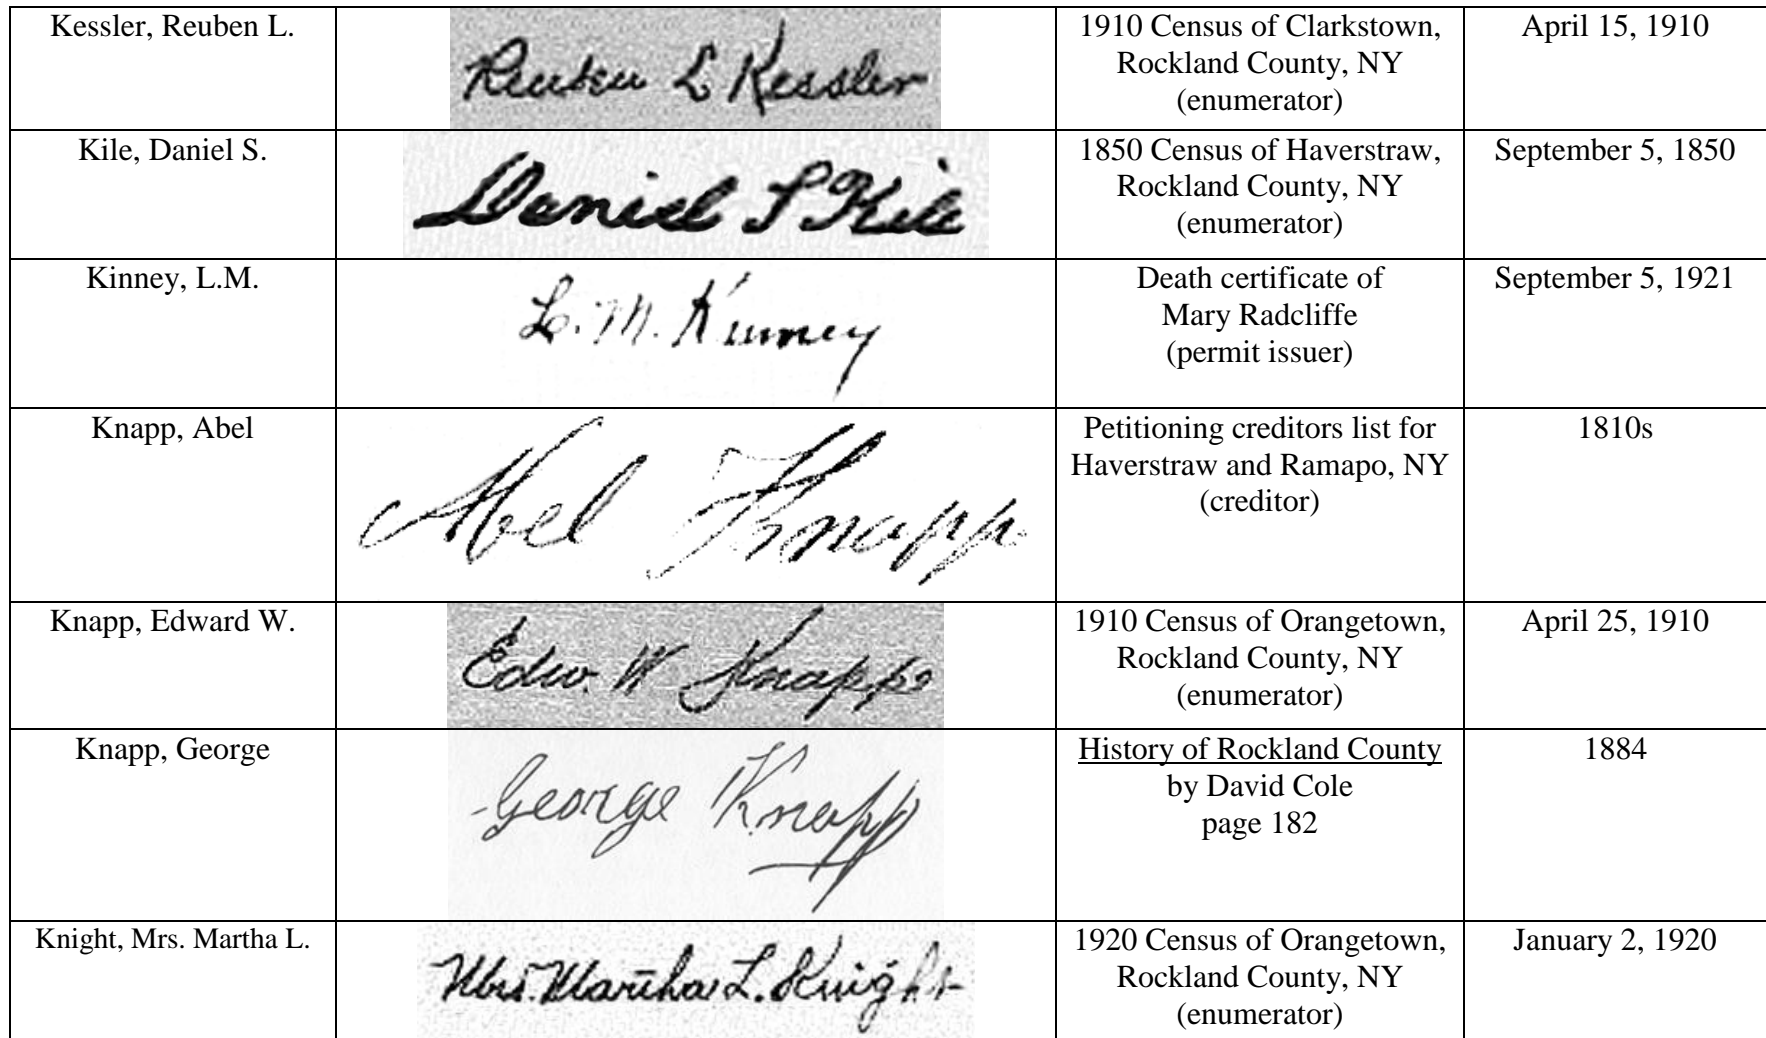 Kessler, Reuben L.
Reuben L Kessler
1910 Census of Clarkstown,
Rockland County, NY
(enumerator)
April 15, 1910
Kile, Daniel S.
Daniel S Kile
1850 Census of Haverstraw,
Rockland County, NY
(enumerator)
September 5, 1850
Kinney, L.M.
L. M. Kinney
Death certificate of
Mary Radcliffe
(permit issuer)
September 5, 1921
Knapp, Abel
Abel Knapp
Petitioning creditors list for
Haverstraw and Ramapo, NY
(creditor)
1810s
Knapp, Edward W.
Edw. W Knapp
1910 Census of Orangetown,
Rockland County, NY
(enumerator)
April 25, 1910
Knapp, George
George Knapp
History of Rockland County
by David Cole
page 182
1884
Knight, Mrs. Martha L.
Mrs. Martha L. Knight
1920 Census of Orangetown,
Rockland County, NY
(enumerator)
January 2, 1920